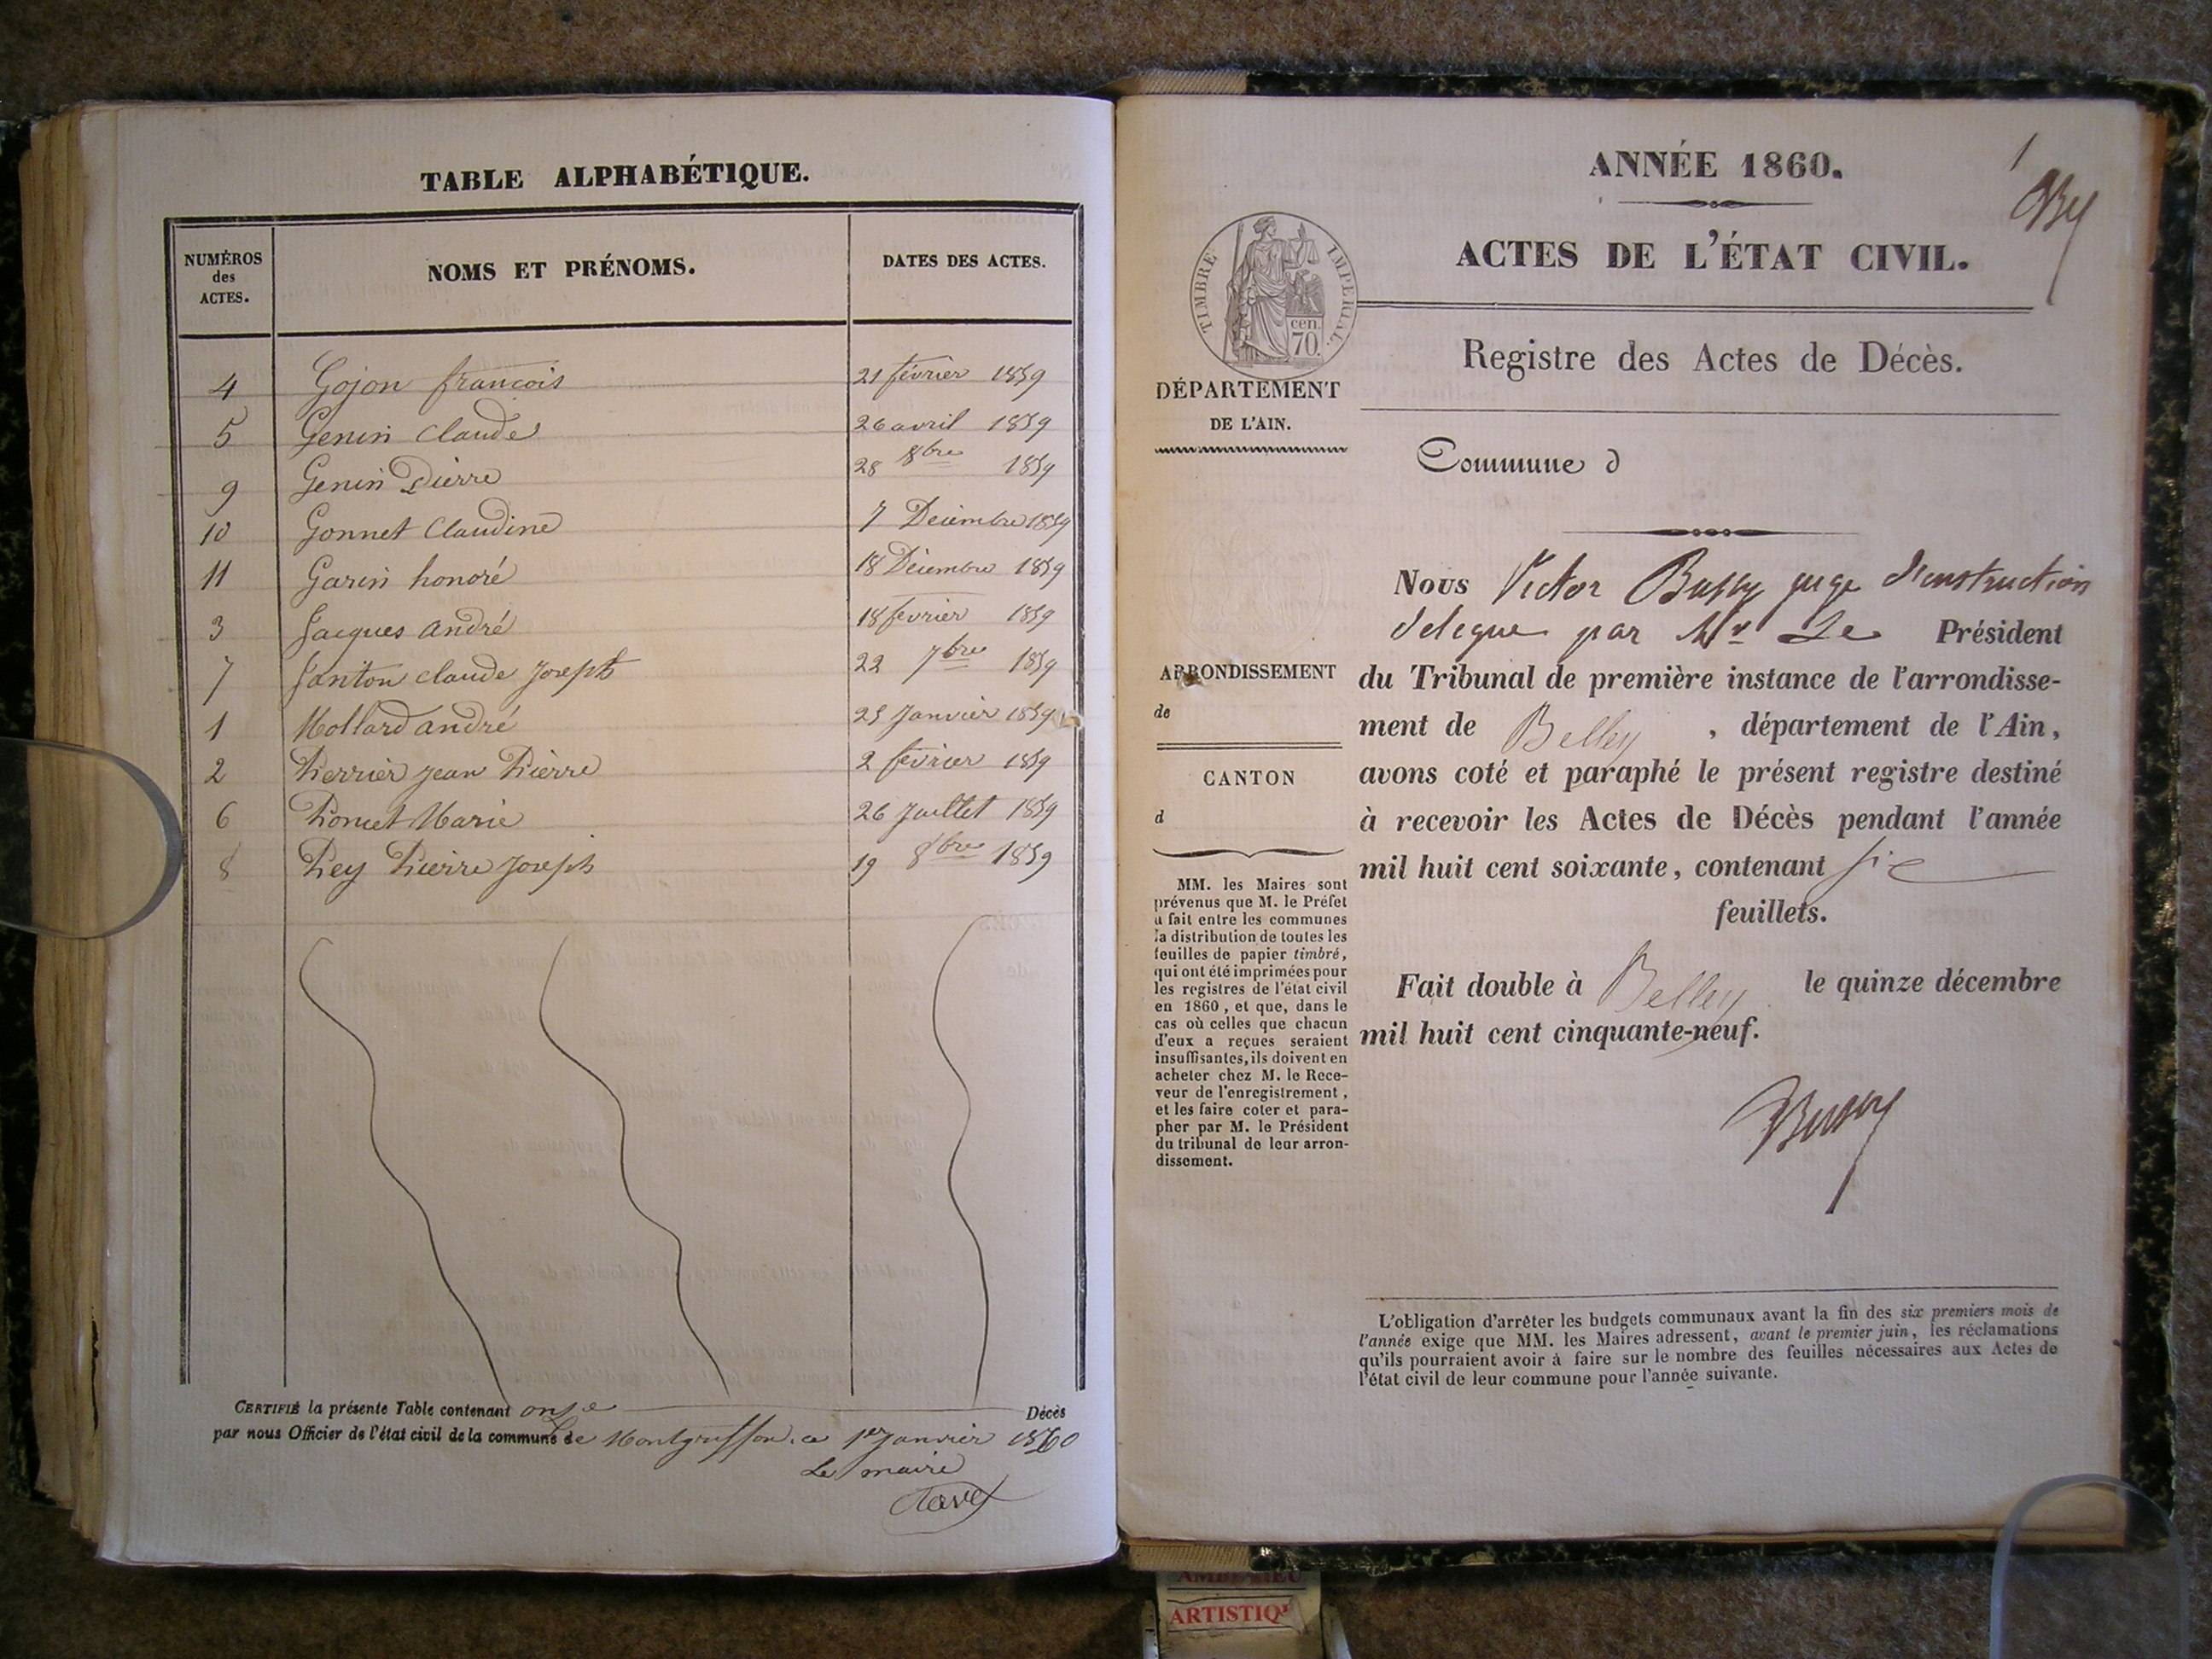 TABLE ALPHABÉTIQUE.
NUMÉROS
des
ACTES.
NOMS ET PRÉNOMS.
DATES DES ACTES.
4 Gojon françois 21 février 1859
5 Genin Claude 26 avril 1859
9 Genin Pierre 28 8bre 1859
10 Gonnet Claudine 7 Décembre 1859
11 Garin honoré 18 Décembre 1859
3 Jacques André 18 février 1859
7 Janton claude Joseph 22 7bre 1859
1 Mollard andré 25 Janvier 1859
2 Perrier jean Pierre 2 février 1859
6 Poncet Marie 26 Juillet 1859
8 Pey Pierre Joseph 19 8bre 1859
CERTIFIÉ la présente Table contenant onze Décès
par nous Officier de l'état civil de la commune de ce 1er Janvier 1860
Le maire
ANNÉE 1860.
1
ACTES DE L'ÉTAT CIVIL.
TIMBRE IMPERIAL.
cen.
70.
Registre des Actes de Décès.
DÉPARTEMENT
DE L'AIN.
Commune d
Nous Victor Bussy juge d'instruction
délégué par Mr Le Président
du Tribunal de première instance de l'arrondisse-
ment de Belley, département de l'Ain,
avons coté et paraphé le présent registre destiné
à recevoir les Actes de Décès pendant l'année
mil huit cent soixante, contenant six
feuillets.
Fait double à Belley le quinze décembre
mil huit cent cinquante-neuf.
Bussy
ARRONDISSEMENT
de
CANTON
d
MM. les Maires sont
prévenus que M. le Préfet
a fait entre les communes
la distribution de toutes les
feuilles de papier timbré,
qui ont été imprimées pour
les registres de l'état civil
en 1860, et que, dans le
cas où celles que chacun
d'eux a reçues seraient
insuffisantes, ils doivent en
acheter chez M. le Rece-
veur de l'enregistrement,
et les faire coter et para-
pher par M. le Président
du tribunal de leur arron-
dissement.
L'obligation d'arrêter les budgets communaux avant la fin des six premiers mois de
l'année exige que MM. les Maires adressent, avant le premier juin, les réclamations
qu'ils pourraient avoir à faire sur le nombre des feuilles nécessaires aux Actes de
l'état civil de leur commune pour l'année suivante.
ARTISTIQ